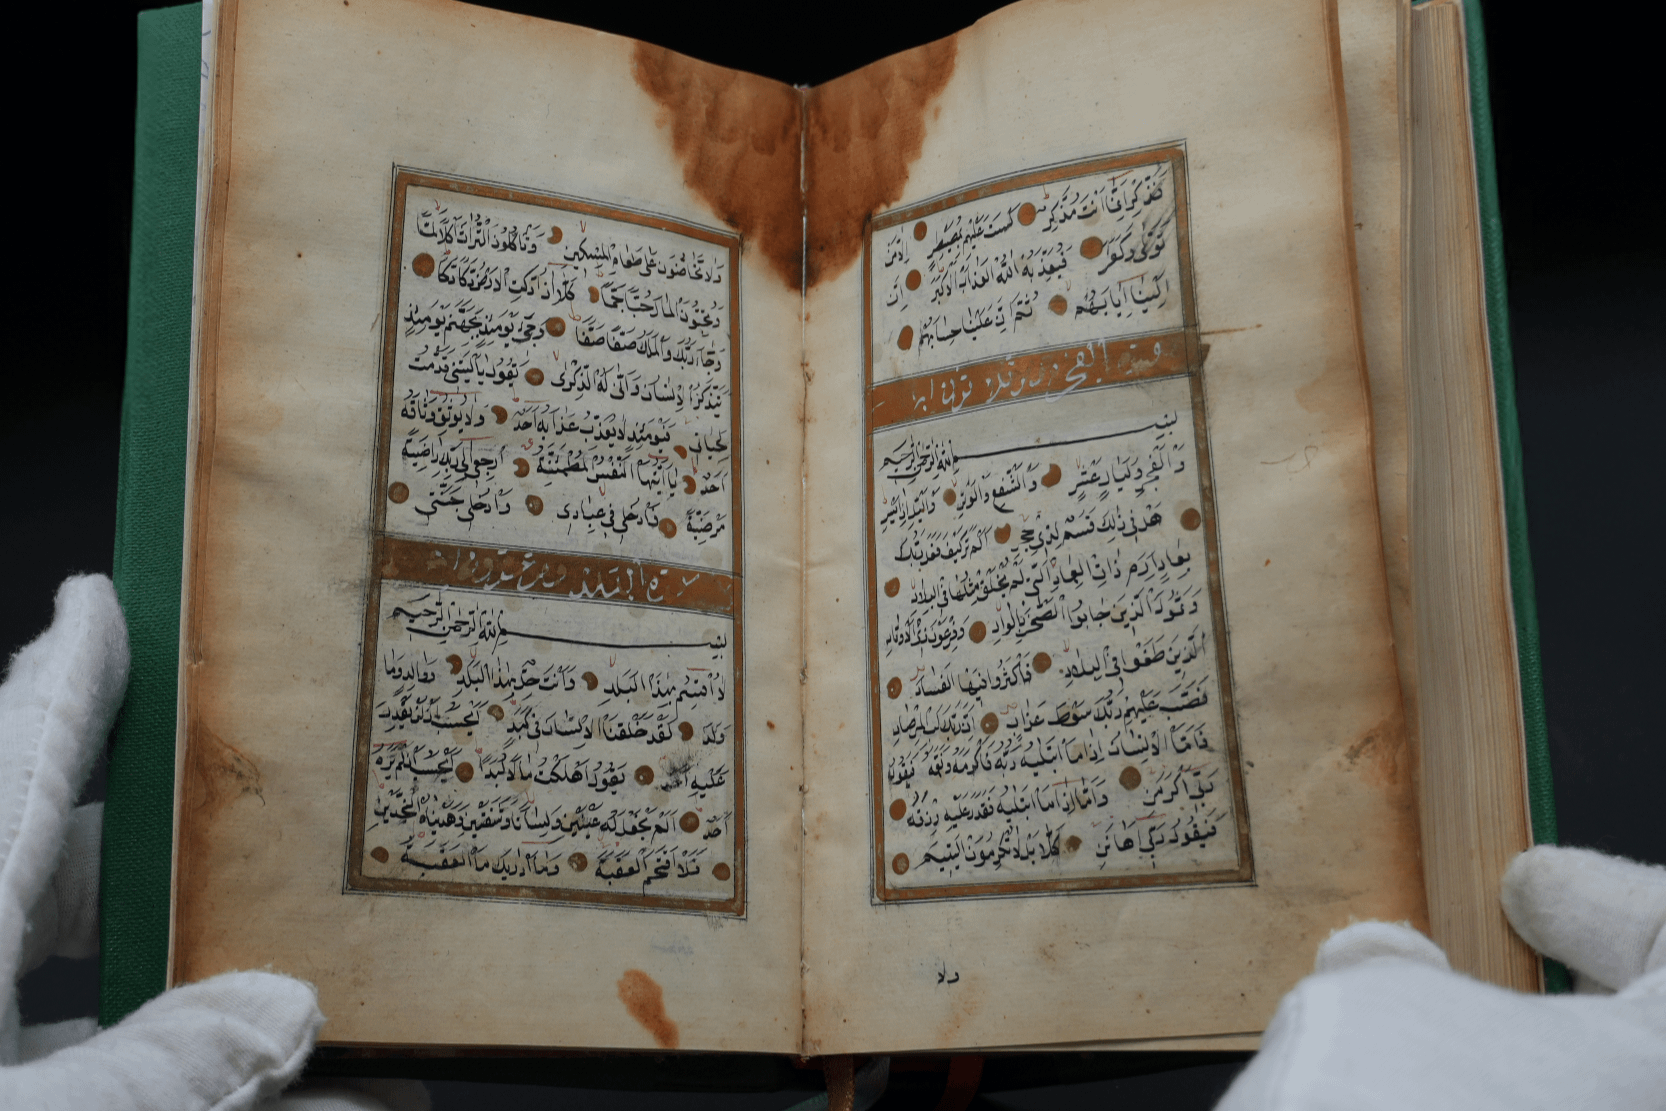 فَذَكِّرْ اِنَّمَا اَنْتَ مُذَكِّرٌ لَسْتَ عَلَيْهِمْ بِمُصَيْطِرٍ اِلَّا مَنْ
تَوَلّٰى وَكَفَرَ فَيُعَذِّبُهُ اللّٰهُ الْعَذَابَ الْاَكْبَرَ اِنَّ
اِلَيْنَا اِيَابَهُمْ ثُمَّ اِنَّ عَلَيْنَا حِسَابَهُمْ
سورة الفجر
بِسْمِ اللّٰهِ الرَّحْمٰنِ الرَّحِيمِ
وَالْفَجْرِ وَلَيَالٍ عَشْرٍ وَالشَّفْعِ وَالْوَتْرِ وَالَّيْلِ اِذَا يَسْرِ
هَلْ فِى ذٰلِكَ قَسَمٌ لِذِى حِجْرٍ اَلَمْ تَرَ كَيْفَ فَعَلَ رَبُّكَ
بِعَادٍ اِرَمَ ذَاتِ الْعِمَادِ الَّتِى لَمْ يُخْلَقْ مِثْلُهَا فِى الْبِلَادِ
وَثَمُودَ الَّذِينَ جَابُوا الصَّخْرَ بِالْوَادِ وَفِرْعَوْنَ ذِى الْاَوْتَادِ
الَّذِينَ طَغَوْا فِى الْبِلَادِ فَاَكْثَرُوا فِيهَا الْفَسَادَ
فَصَبَّ عَلَيْهِمْ رَبُّكَ سَوْطَ عَذَابٍ اِنَّ رَبَّكَ لَبِالْمِرْصَادِ
فَاَمَّا الْاِنْسَانُ اِذَا مَا ابْتَلٰيهُ رَبُّهُ فَاَكْرَمَهُ وَنَعَّمَهُ فَيَقُولُ
رَبِّى اَكْرَمَنِ وَاَمَّا اِذَا مَا ابْتَلٰيهُ فَقَدَرَ عَلَيْهِ رِزْقَهُ
فَيَقُولُ رَبِّى اَهَانَنِ كَلَّا بَلْ لَا تُكْرِمُونَ الْيَتِيمَ
ولا
وَلَا تَحَاضُّونَ عَلٰى طَعَامِ الْمِسْكِينِ وَتَاْكُلُونَ التُّرَاثَ اَكْلًا لَمًّا
وَتُحِبُّونَ الْمَالَ حُبًّا جَمًّا كَلَّا اِذَا دُكَّتِ الْاَرْضُ دَكًّا دَكًّا
وَجَاءَ رَبُّكَ وَالْمَلَكُ صَفًّا صَفًّا وَجِىءَ يَوْمَئِذٍ بِجَهَنَّمَ يَوْمَئِذٍ
يَتَذَكَّرُ الْاِنْسَانُ وَاَنّٰى لَهُ الذِّكْرٰى يَقُولُ يَا لَيْتَنِى قَدَّمْتُ
لِحَيَاتِى فَيَوْمَئِذٍ لَا يُعَذِّبُ عَذَابَهُ اَحَدٌ وَلَا يُوثِقُ وَثَاقَهُ
اَحَدٌ يَا اَيَّتُهَا النَّفْسُ الْمُطْمَئِنَّةُ اِرْجِعِى اِلٰى رَبِّكِ رَاضِيَةً
مَرْضِيَّةً فَادْخُلِى فِى عِبَادِى وَادْخُلِى جَنَّتِى
سورة البلد
بِسْمِ اللّٰهِ الرَّحْمٰنِ الرَّحِيمِ
لَا اُقْسِمُ بِهٰذَا الْبَلَدِ وَاَنْتَ حِلٌّ بِهٰذَا الْبَلَدِ وَوَالِدٍ وَمَا
وَلَدَ لَقَدْ خَلَقْنَا الْاِنْسَانَ فِى كَبَدٍ اَيَحْسَبُ اَنْ لَنْ يَقْدِرَ
عَلَيْهِ اَحَدٌ يَقُولُ اَهْلَكْتُ مَالًا لُبَدًا اَيَحْسَبُ اَنْ لَمْ يَرَهُ
اَحَدٌ اَلَمْ نَجْعَلْ لَهُ عَيْنَيْنِ وَلِسَانًا وَشَفَتَيْنِ وَهَدَيْنَاهُ النَّجْدَيْنِ
فَلَا اقْتَحَمَ الْعَقَبَةَ وَمَا اَدْرٰيكَ مَا الْعَقَبَةُ